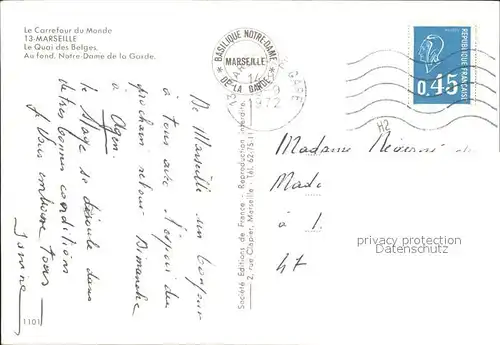 Le Carrefour du Monde
13-MARSEILLE
Le Quai des Belges.
Au fond, Notre-Dame de la Garde.
BASILIQUE NOTRE-DAME
MARSEILLE
DE LA GARDE
13 MARSEILLE GARE
14
1972
RÉPUBLIQUE FRANÇAISE
0,45
H2
De Marseille un bonjour
à tous avec l'espoir du
prochain retour Dimanche
à Agen.
Le Stage se déroule dans
de très bonnes conditions
Je vous embrasse tous
1101
Société Editions de France - Reproduction interdite.
2, rue Chapier, Marseille - Tél. 62-75-11
Madame
Mad
à L
47
privacy protection
Datenschutz